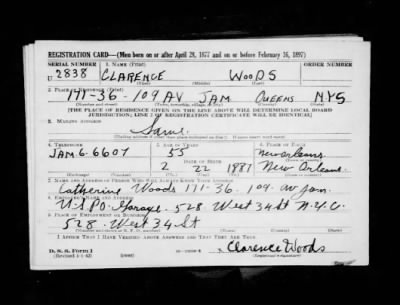 REGISTRATION CARD—(Men born on or after April 28, 1877 and on or before February 16, 1897)
SERIAL NUMBER 1. NAME (Print) ORDER NUMBER
U 2838 CLARENCE WOODS
(First) (Middle) (Last)
2. PLACE OF RESIDENCE (Print)
171-36-109 AV JAM QUEENS NYS
(Number and street) (Town, township, village, or city) (County) (State)
[THE PLACE OF RESIDENCE GIVEN ON THE LINE ABOVE WILL DETERMINE LOCAL BOARD
JURISDICTION; LINE 2 OF REGISTRATION CERTIFICATE WILL BE IDENTICAL]
3. MAILING ADDRESS
Same
[Mailing address if other than place indicated on line 2. If same insert word same]
4. TELEPHONE 5. AGE IN YEARS 6. PLACE OF BIRTH
JAM. 6-6607 55 New Orleans
DATE OF BIRTH
2 22 1887 New Orleans
(Exchange) (Number) (Mo.) (Day) (Yr.) (State or country)
7. NAME AND ADDRESS OF PERSON WHO WILL ALWAYS KNOW YOUR ADDRESS
Catherine Woods 171-36. 109. av Jam.
8. EMPLOYER'S NAME AND ADDRESS
U.S.P.O. Garage. 528 West 34 St N.Y.C.
9. PLACE OF EMPLOYMENT OR BUSINESS
528. West 34 St
(Number and street or R. F. D. number) (Town) (County) (State)
I AFFIRM THAT I HAVE VERIFIED ABOVE ANSWERS AND THAT THEY ARE TRUE.
D. S. S. Form 1
(Revised 4-1-42) (over) Clarence Woods
(Registrant's signature)